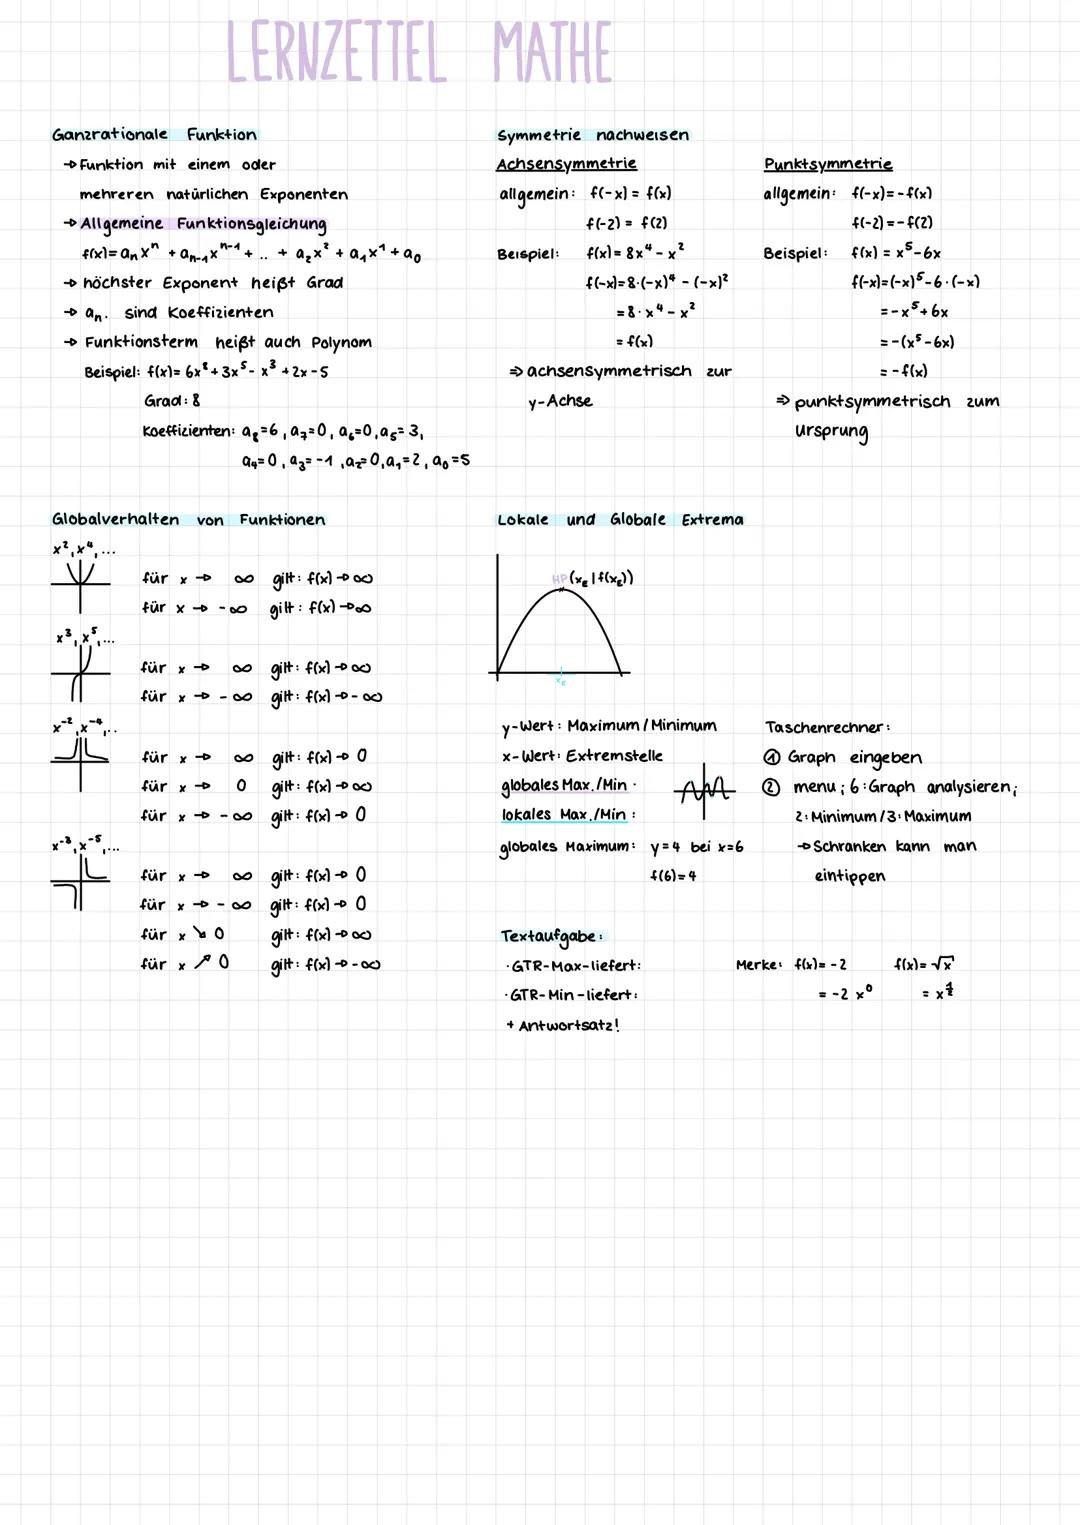 LERNZETTEL MATHE
Ganzrationale Funktion
→ Funktion mit einem oder
mehreren natürlichen Exponenten
→ Allgemeine Funktionsgleichung
f(x)= aₙxⁿ + aₙ₋₁xⁿ⁻¹ + .. + a₂x² + a₁x¹ + a₀
→ höchster Exponent heißt Grad
→ aₙ. sind Koeffizienten
→ Funktionsterm heißt auch Polynom
Beispiel: f(x)= 6x⁸ + 3x⁵ - x³ + 2x - 5
Grad: 8
Koeffizienten: a₈=6, a₇=0, a₆=0, a₅=3,
a₄=0, a₃=-1, a₂=0, a₁=2, a₀=5
Symmetrie nachweisen
Achsensymmetrie
allgemein: f(-x) = f(x)
f(-2) = f(2)
Beispiel: f(x)= 8x⁴ - x²
f(-x)=8·(-x)⁴ - (-x)²
=8·x⁴ - x²
= f(x)
⇒ achsensymmetrisch zur
y-Achse
Punktsymmetrie
allgemein: f(-x)=-f(x)
f(-2)=-f(2)
Beispiel: f(x) = x⁵-6x
f(-x)=(-x)⁵-6·(-x)
=-x⁵+6x
=-(x⁵-6x)
=-f(x)
⇒ punktsymmetrisch zum
Ursprung
Globalverhalten von Funktionen
x², x⁴, ...
für x → ∞ gilt: f(x) → ∞
für x → -∞ gilt: f(x) → ∞
x³, x⁵, ...
für x → ∞ gilt: f(x) → ∞
für x → -∞ gilt: f(x) → -∞
x⁻², x⁻⁴, ..
für x → ∞ gilt: f(x) → 0
für x → 0 gilt: f(x) → ∞
für x → -∞ gilt: f(x) → 0
x⁻³, x⁻⁵, ...
für x → ∞ gilt: f(x) → 0
für x → -∞ gilt: f(x) → 0
für x ↘ 0 gilt: f(x) → ∞
für x ↗ 0 gilt: f(x) → -∞
Lokale und Globale Extrema
HP(x_E|f(x_E))
x_E
y-Wert: Maximum/Minimum
x-Wert: Extremstelle
globales Max./Min ·
lokales Max./Min :
globales Maximum: y=4 bei x=6
f(6)=4
Taschenrechner:
① Graph eingeben
② menu; 6:Graph analysieren;
2:Minimum/3:Maximum
→ Schranken kann man
eintippen
Textaufgabe:
·GTR-Max-liefert:
·GTR-Min-liefert:
+ Antwortsatz!
Merke: f(x)= -2 f(x)= √x
= -2 x⁰ = x^½